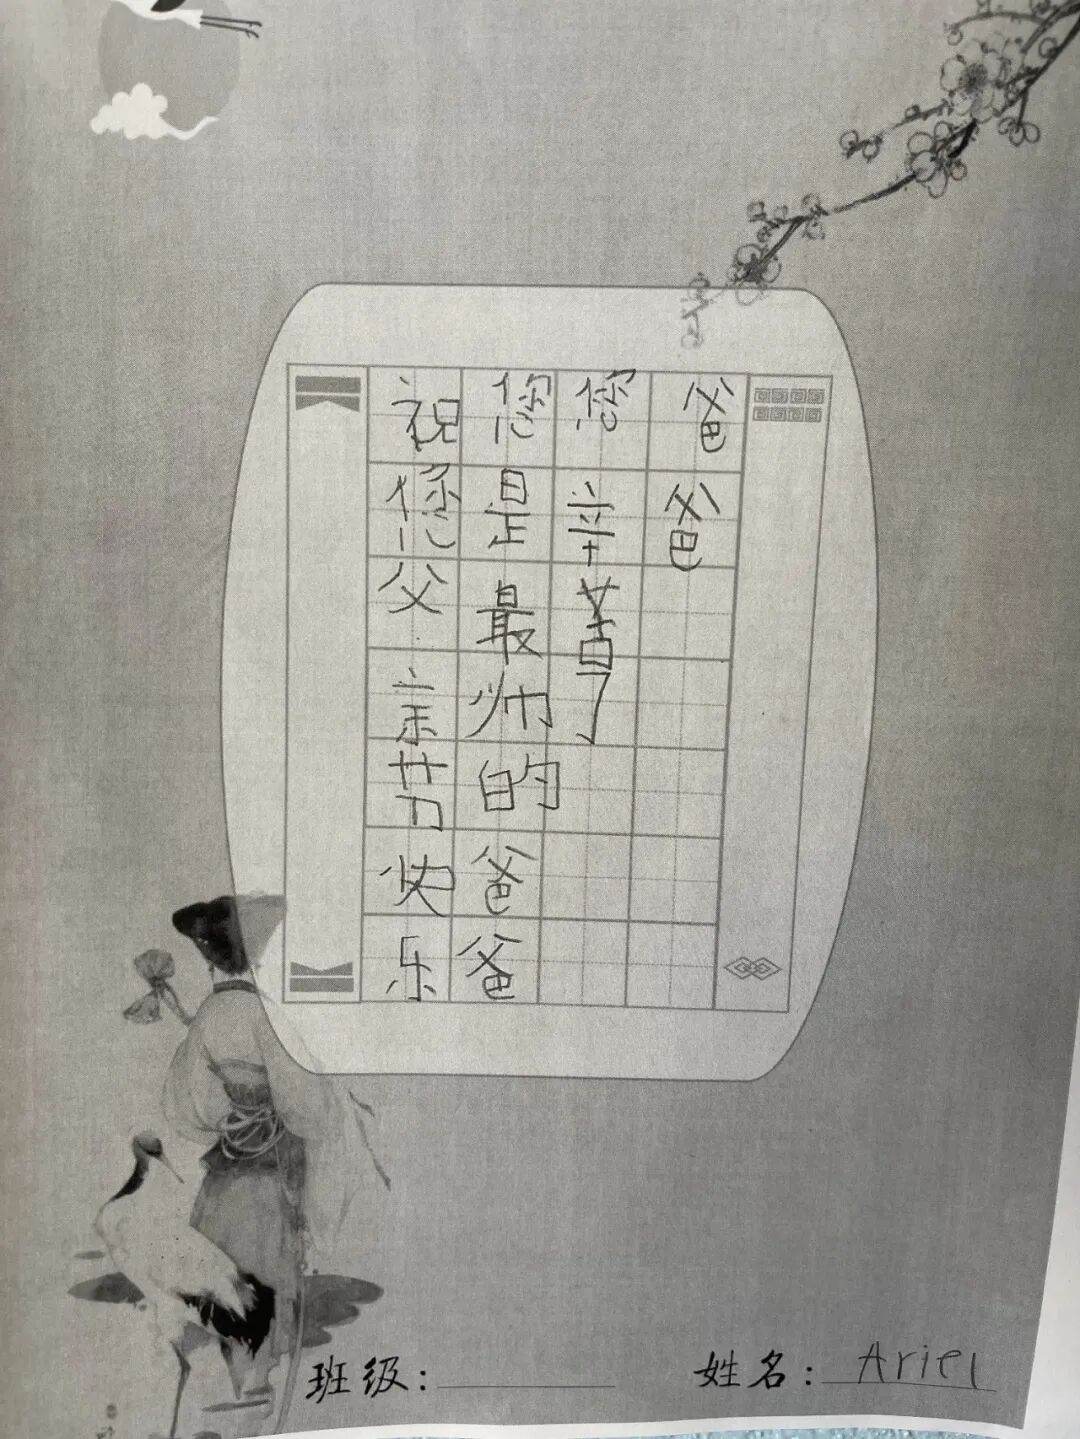 爸爸
您辛苦了
您是最帅的爸爸
祝您父亲节快乐
班级：
姓名：Ariel